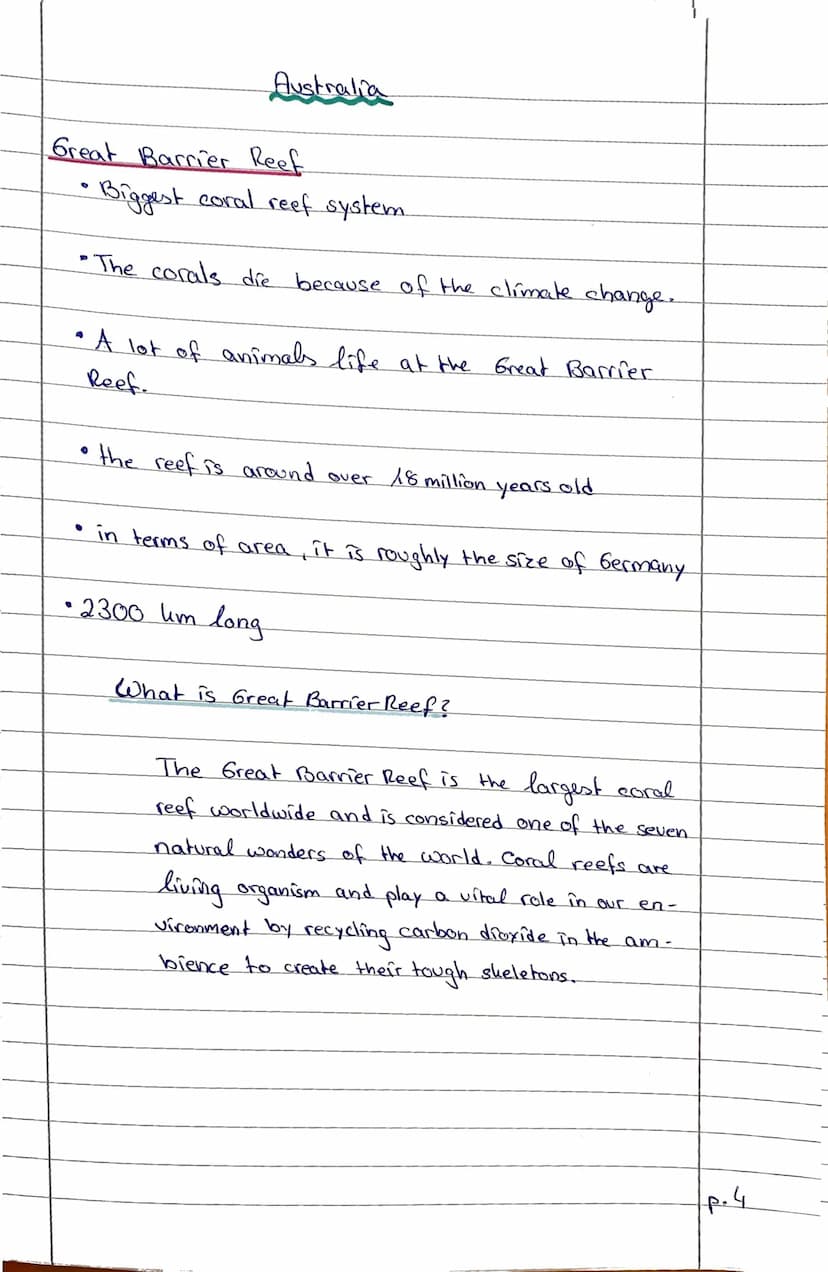 Australia
Great Barrier Reef
• Biggest coral reef system
• The corals die because of the climate change.
• A lot of animals life at the Great Barrier
Reef.
• the reef is around over 18 million years old
• in terms of area, it is roughly the size of Germany
• 2300 km long
What is Great Barrier Reef?
The Great Barrier Reef is the largest coral
reef worldwide and is considered one of the seven
natural wonders of the world. Coral reefs are
living organism and play a vital role in our en-
vironment by recycling carbon dioxide in the am-
bience to create their tough skeletons.
p. 4